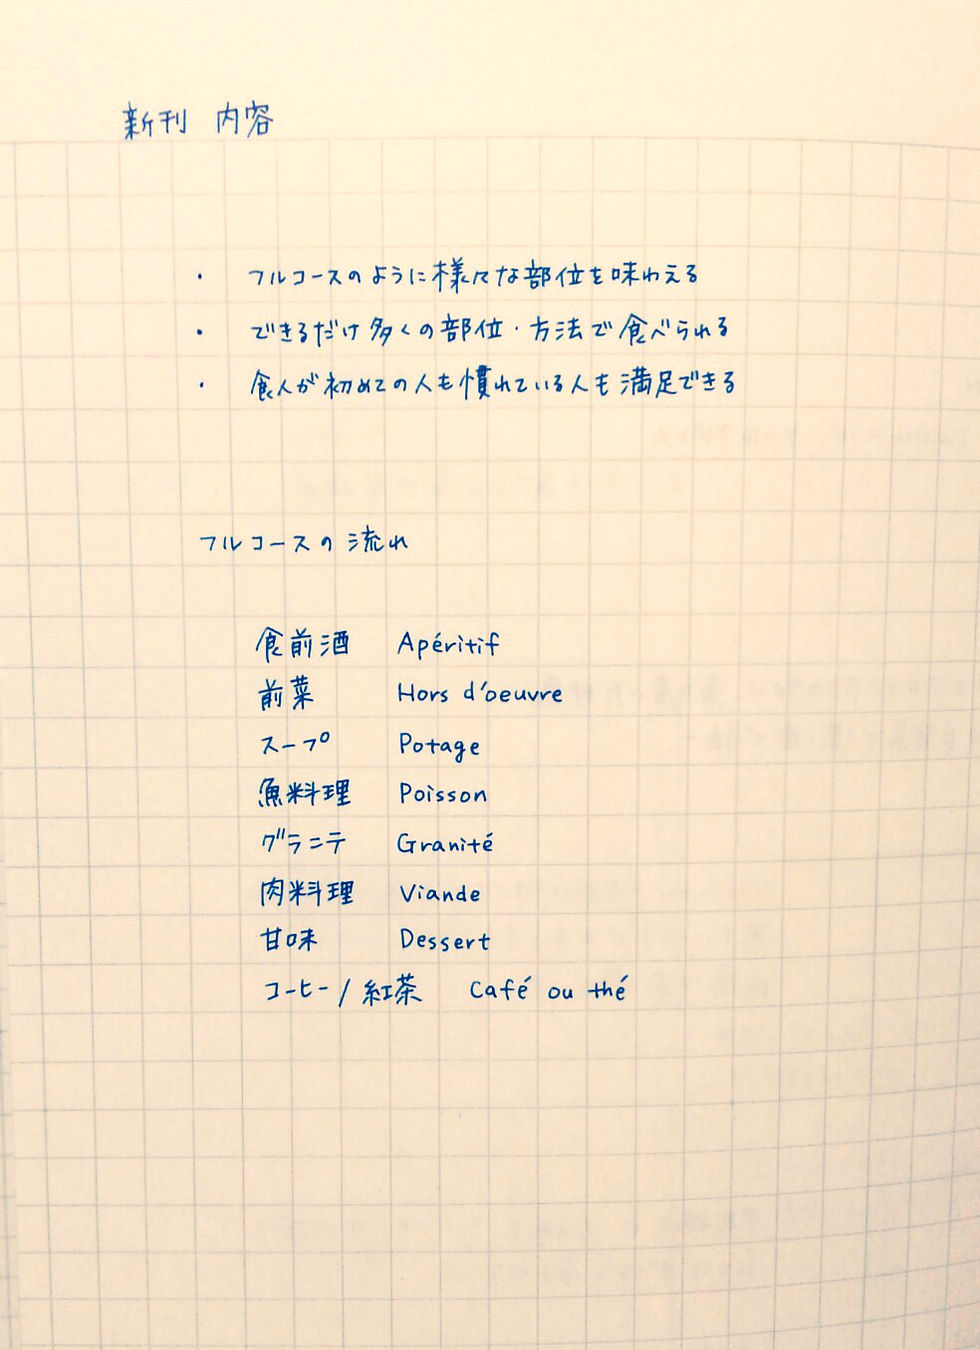 新刊 内容
・ フルコースのように様々な部位を味わえる
・ できるだけ多くの部位・方法で食べられる
・ 食人が初めての人も慣れている人も満足できる
フルコースの流れ
食前酒 Apéritif
前菜 Hors d'oeuvre
スープ Potage
魚料理 Poisson
グラニテ Granité
肉料理 Viande
甘味 Dessert
コーヒー/紅茶 Café ou thé